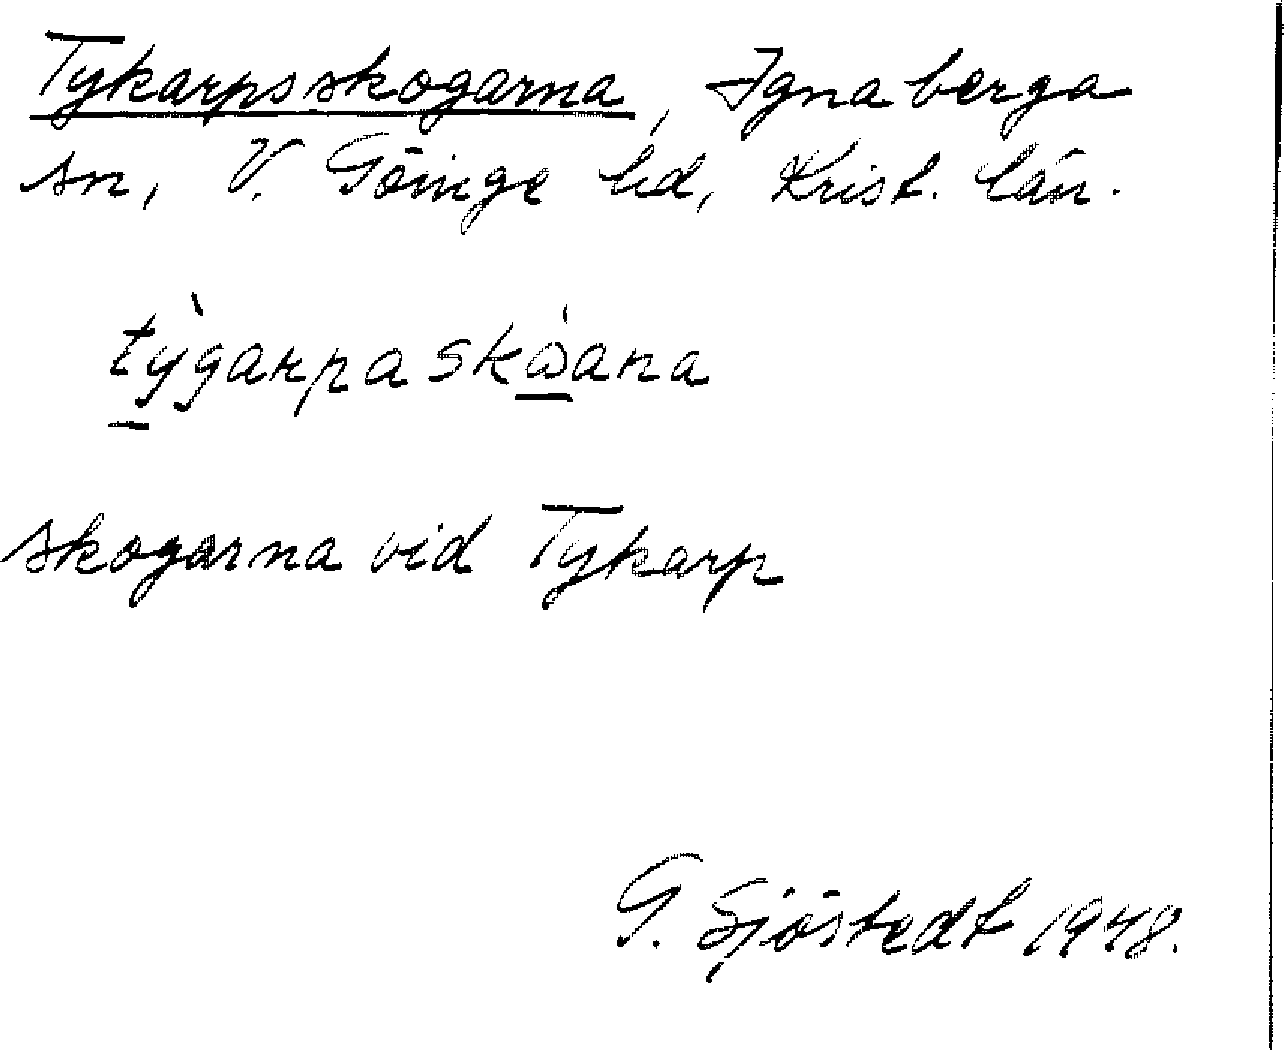 Tykarpsskogarna, Ignaberga
sn, V. Göinge hd, Krist. län.
tỳgarpaskɷ̀ana
skogarna vid Tykarp
G. Sjöstedt 1948.